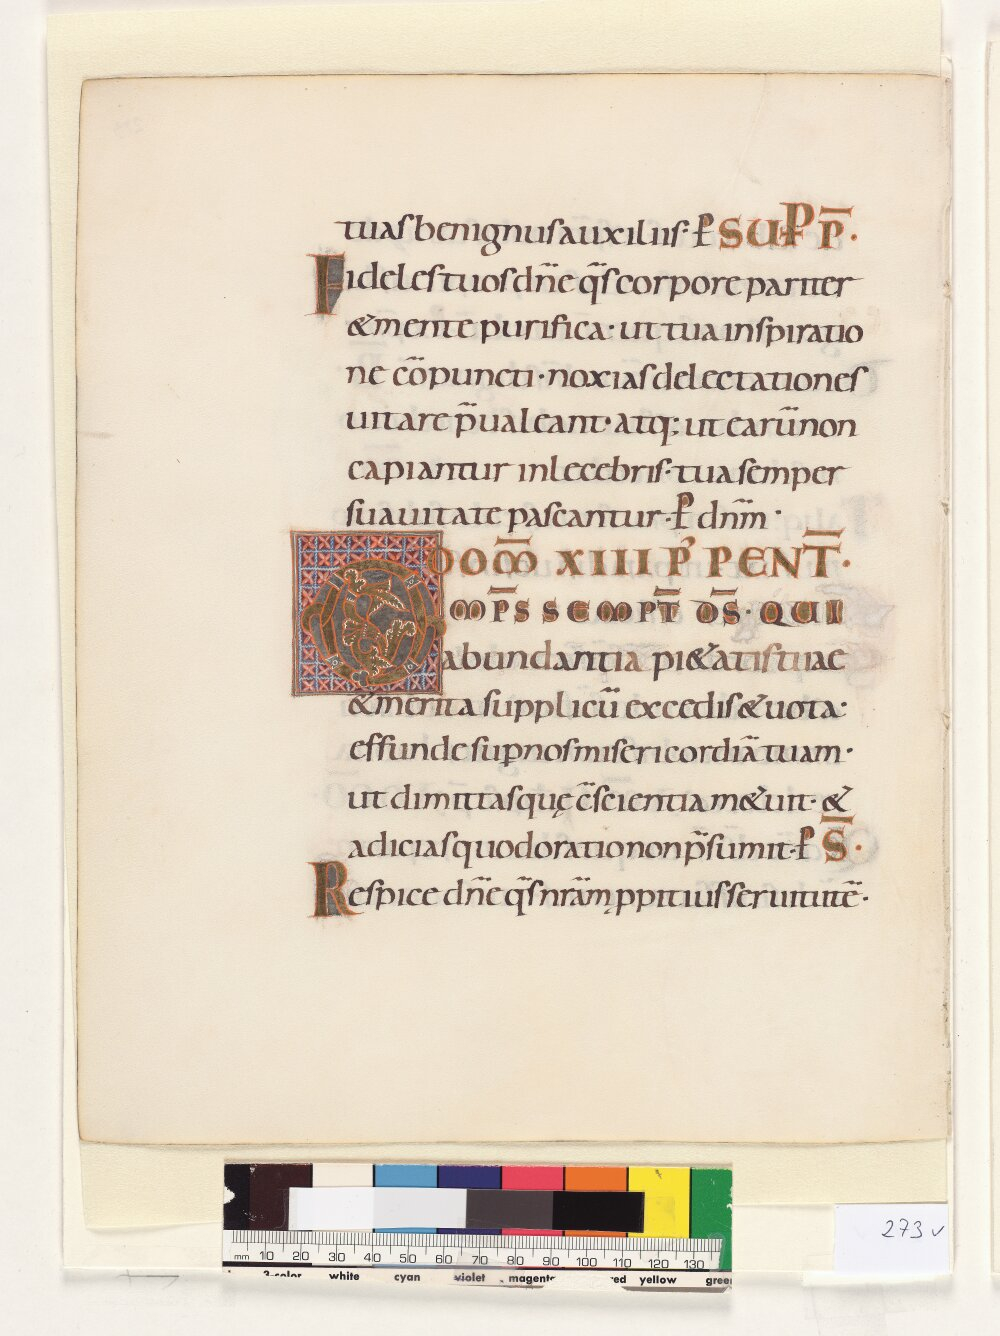 tuas benignus auxiliis· ꝑ SUP P̄·
Fideles tuos dn̄e q̄s corpore pariter
& mente purifica· ut tua inspiratio
ne cōpuncti· noxias delectationes
uitare p̄ualeant· atq; ut earū non
capiantur inlecebris· tua semper
suauitate pascantur· ꝑ dn̄m·
DOM̄ XIIII P' PENT̄·
OMP̄S SEMPT̄ D̄S· QUI
abundantia pi&atis tuae
& merita supplicū excedis & uota·
effunde suꝑ nos misericordiā tuam·
ut dimittas quę c̄scientia m&uit· &
adicias quod oratio non p̄sumit· ꝑ S̄·
Respice dn̄e q̄s nr̄am ꝓpitius seruitutē·
273v
mm 10 20 30 40 50 60 70 80 90 100 110 120 130
3-color white cyan violet magenta red yellow green